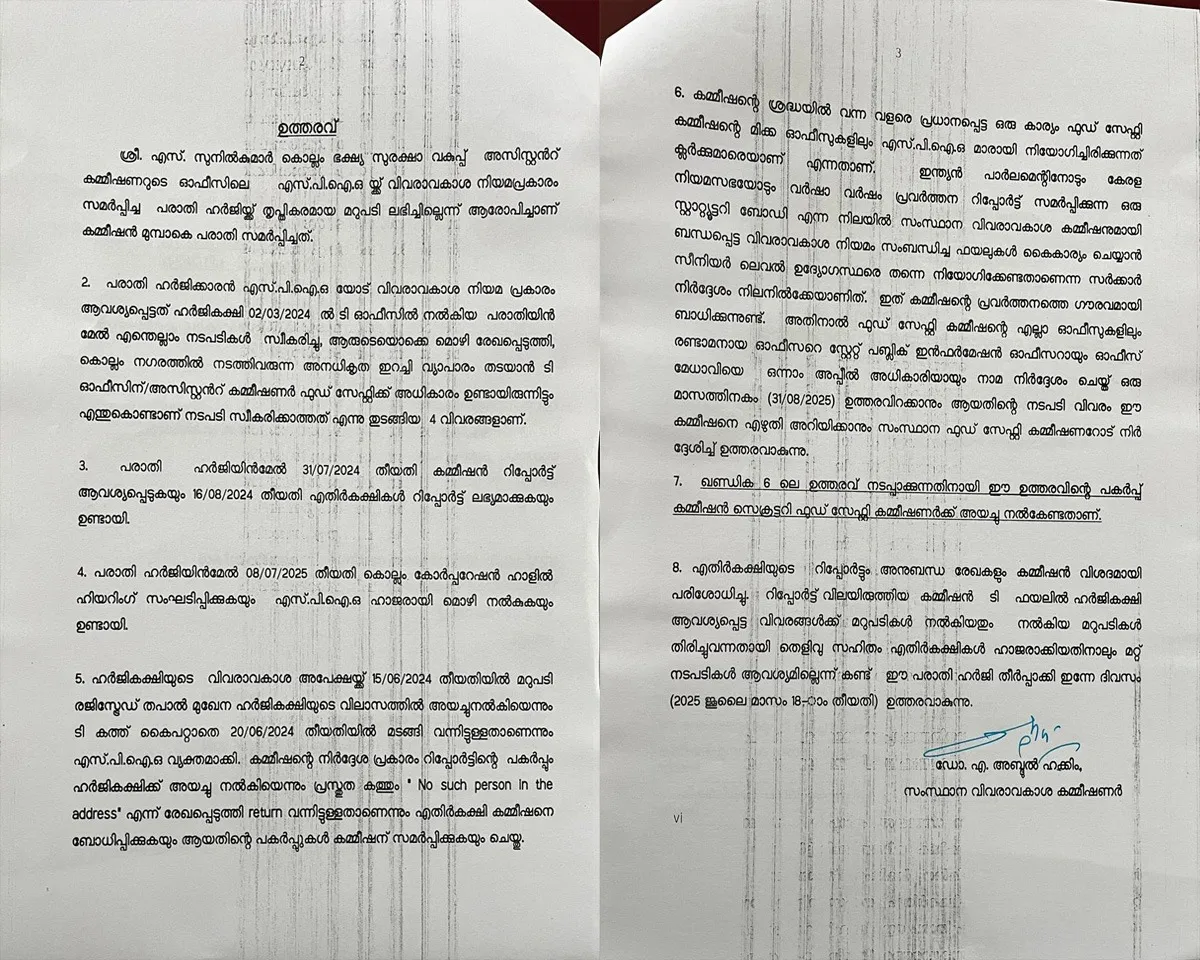 2
ഉത്തരവ്
ശ്രീ. എസ്. സുനിൽകുമാർ കൊല്ലം ഭക്ഷ്യ സുരക്ഷാ വകുപ്പ് അസിസ്റ്റൻറ്
കമ്മീഷണറുടെ ഓഫീസിലെ എസ്.പി.ഐ.ഒ യ്ക്ക് വിവരാവകാശ നിയമപ്രകാരം
സമർപ്പിച്ച പരാതി ഹർജിയ്ക്ക് തൃപ്തികരമായ മറുപടി ലഭിച്ചില്ലെന്ന് ആരോപിച്ചാണ്
കമ്മീഷൻ മുമ്പാകെ പരാതി സമർപ്പിച്ചത്.
2. പരാതി ഹർജിക്കാരൻ എസ്.പി.ഐ.ഒ യോട് വിവരാവകാശ നിയമ പ്രകാരം
ആവശ്യപ്പെട്ടത് ഹർജികക്ഷി 02/03/2024 ൽ ടി ഓഫീസിൽ നൽകിയ പരാതിയിൻ
മേൽ എന്തെല്ലാം നടപടികൾ സ്വീകരിച്ചു, ആരുടെയൊക്കെ മൊഴി രേഖപ്പെടുത്തി,
കൊല്ലം നഗരത്തിൽ നടത്തിവരുന്ന അനധികൃത ഇറച്ചി വ്യാപാരം തടയാൻ ടി
ഓഫീസിന്/അസിസ്റ്റൻറ് കമ്മീഷണർ ഫുഡ് സേഫ്റ്റിക്ക് അധികാരം ഉണ്ടായിരുന്നിട്ടും
എന്തുകൊണ്ടാണ് നടപടി സ്വീകരിക്കാത്തത് എന്നു തുടങ്ങിയ 4 വിവരങ്ങളാണ്.
3. പരാതി ഹർജിയിൻമേൽ 31/07/2024 തീയതി കമ്മീഷൻ റിപ്പോർട്ട്
ആവശ്യപ്പെടുകയും 16/08/2024 തീയതി എതിർകക്ഷികൾ റിപ്പോർട്ട് ലഭ്യമാക്കുകയും
ഉണ്ടായി.
4. പരാതി ഹർജിയിൻമേൽ 08/07/2025 തീയതി കൊല്ലം കോർപ്പറേഷൻ ഹാളിൽ
ഹിയറിംഗ് സംഘടിപ്പിക്കുകയും എസ്.പി.ഐ.ഒ ഹാജരായി മൊഴി നൽകുകയും
ഉണ്ടായി.
5. ഹർജികക്ഷിയുടെ വിവരാവകാശ അപേക്ഷയ്ക്ക് 15/06/2024 തീയതിയിൽ മറുപടി
രജിസ്ട്രേഡ് തപാൽ മുഖേന ഹർജികക്ഷിയുടെ വിലാസത്തിൽ അയച്ചുനൽകിയെന്നും
ടി കത്ത് കൈപറ്റാതെ 20/06/2024 തീയതിയിൽ മടങ്ങി വന്നിട്ടുള്ളതാണെന്നും
എസ്.പി.ഐ.ഒ വ്യക്തമാക്കി. കമ്മീഷന്റെ നിർദ്ദേശ പ്രകാരം റിപ്പോർട്ടിന്റെ പകർപ്പും
ഹർജികക്ഷിക്ക് അയച്ചു നൽകിയെന്നും പ്രസ്തുത കത്തും " No such person in the
address" എന്ന് രേഖപ്പെടുത്തി return വന്നിട്ടുള്ളതാണെന്നും എതിർകക്ഷി കമ്മീഷനെ
ബോധിപ്പിക്കുകയും ആയതിന്റെ പകർപ്പുകൾ കമ്മീഷന് സമർപ്പിക്കുകയും ചെയ്തു.
3
6. കമ്മീഷന്റെ ശ്രദ്ധയിൽ വന്ന വളരെ പ്രധാനപ്പെട്ട ഒരു കാര്യം ഫുഡ് സേഫ്റ്റി
കമ്മീഷന്റെ മിക്ക ഓഫീസുകളിലും എസ്.പി.ഐ.ഒ മാരായി നിയോഗിച്ചിരിക്കുന്നത്
ക്ലർക്കുമാരെയാണ് എന്നതാണ്. ഇന്ത്യൻ പാർലമെന്റിനോടും കേരള
നിയമസഭയോടും വർഷാ വർഷം പ്രവർത്തന റിപ്പോർട്ട് സമർപ്പിക്കുന്ന ഒരു
സ്റ്റാറ്റ്യൂട്ടറി ബോഡി എന്ന നിലയിൽ സംസ്ഥാന വിവരാവകാശ കമ്മീഷനുമായി
ബന്ധപ്പെട്ട വിവരാവകാശ നിയമം സംബന്ധിച്ച ഫയലുകൾ കൈകാര്യം ചെയ്യാൻ
സീനിയർ ലെവൽ ഉദ്യോഗസ്ഥരെ തന്നെ നിയോഗിക്കേണ്ടതാണെന്ന സർക്കാർ
നിർദ്ദേശം നിലനിൽക്കേയാണിത്. ഇത് കമ്മീഷന്റെ പ്രവർത്തനത്തെ ഗൗരവമായി
ബാധിക്കുന്നുണ്ട്. അതിനാൽ ഫുഡ് സേഫ്റ്റി കമ്മീഷന്റെ എല്ലാ ഓഫീസുകളിലും
രണ്ടാമനായ ഓഫീസറെ സ്റ്റേറ്റ് പബ്ലിക് ഇൻഫർമേഷൻ ഓഫീസറായും ഓഫീസ്
മേധാവിയെ ഒന്നാം അപ്പീൽ അധികാരിയായും നാമ നിർദ്ദേശം ചെയ്ത് ഒരു
മാസത്തിനകം (31/08/2025) ഉത്തരവിറക്കാനും ആയതിന്റെ നടപടി വിവരം ഈ
കമ്മീഷനെ എഴുതി അറിയിക്കാനും സംസ്ഥാന ഫുഡ് സേഫ്റ്റി കമ്മീഷണറോട് നിർ
ദ്ദേശിച്ച് ഉത്തരവാകുന്നു.
7. ഖണ്ഡിക 6 ലെ ഉത്തരവ് നടപ്പാക്കുന്നതിനായി ഈ ഉത്തരവിന്റെ പകർപ്പ്
കമ്മീഷൻ സെക്രട്ടറി ഫുഡ് സേഫ്റ്റി കമ്മീഷണർക്ക് അയച്ചു നൽകേണ്ടതാണ്.
8. എതിർകക്ഷിയുടെ റിപ്പോർട്ടും അനുബന്ധ രേഖകളും കമ്മീഷൻ വിശദമായി
പരിശോധിച്ചു. റിപ്പോർട്ട് വിലയിരുത്തിയ കമ്മീഷൻ ടി ഫയലിൽ ഹർജികക്ഷി
ആവശ്യപ്പെട്ട വിവരങ്ങൾക്ക് മറുപടികൾ നൽകിയതും നൽകിയ മറുപടികൾ
തിരിച്ചുവന്നതായി തെളിവു സഹിതം എതിർകക്ഷികൾ ഹാജരാക്കിയതിനാലും മറ്റ്
നടപടികൾ ആവശ്യമില്ലെന്ന് കണ്ട് ഈ പരാതി ഹർജി തീർപ്പാക്കി ഇന്നേ ദിവസം
(2025 ജൂലൈ മാസം 18-ാം തീയതി) ഉത്തരവാകുന്നു.
ഡോ. എ. അബ്ദുൽ ഹക്കിം,
സംസ്ഥാന വിവരാവകാശ കമ്മീഷണർ
vi